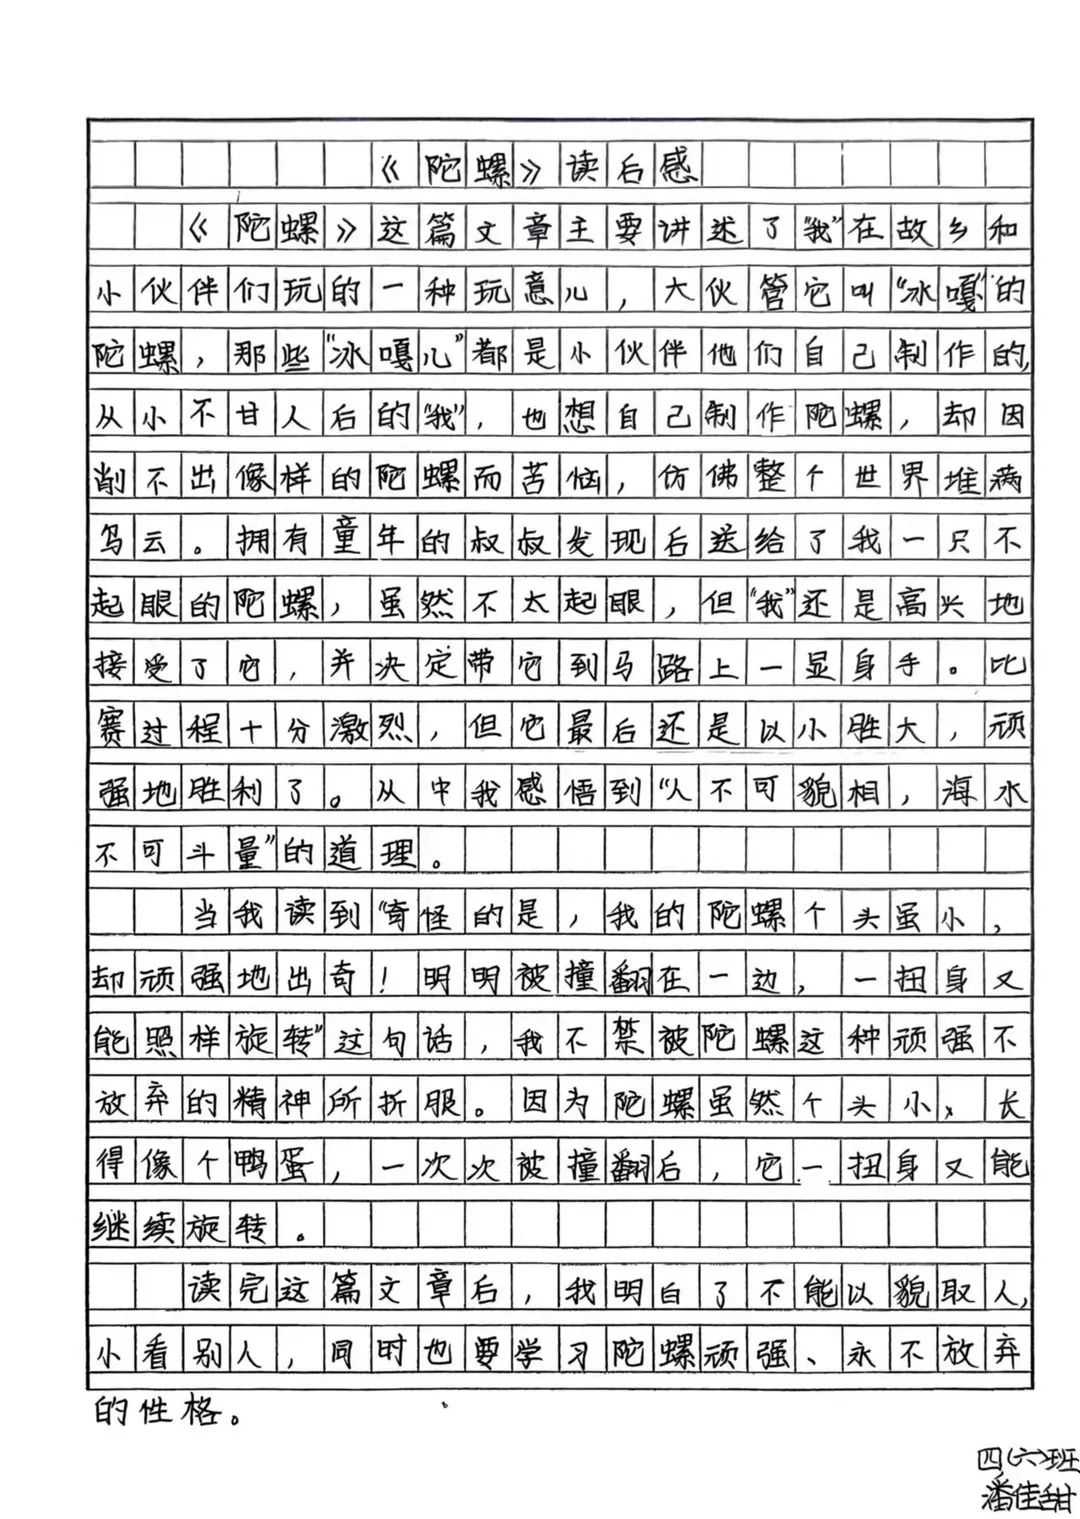 《陀螺》读后感
《陀螺》这篇文章主要讲述了“我”在故乡和
小伙伴们玩的一种玩意儿，大伙管它叫“冰嘎”的
陀螺，那些“冰嘎儿”都是小伙伴他们自己制作的，
从小不甘人后的“我”，也想自己制作陀螺，却因
削不出像样的陀螺而苦恼，仿佛整个世界堆满
乌云。拥有童年的叔叔发现后送给了我一只不
起眼的陀螺，虽然不太起眼，但“我”还是高兴地
接受了它，并决定带它到马路上一显身手。比
赛过程十分激烈，但它最后还是以小胜大，顽
强地胜利了。从中我感悟到“人不可貌相，海水
不可斗量”的道理。
当我读到“奇怪的是，我的陀螺个头虽小，
却顽强地出奇！明明被撞翻在一边，一扭身又
能照样旋转”这句话，我不禁被陀螺这种顽强不
放弃的精神所折服。因为陀螺虽然个头小，长
得像个鸭蛋，一次次被撞翻后，它一扭身又能
继续旋转。
读完这篇文章后，我明白了不能以貌取人，
小看别人，同时也要学习陀螺顽强、永不放弃
的性格。
四(六)班
潘佳甜